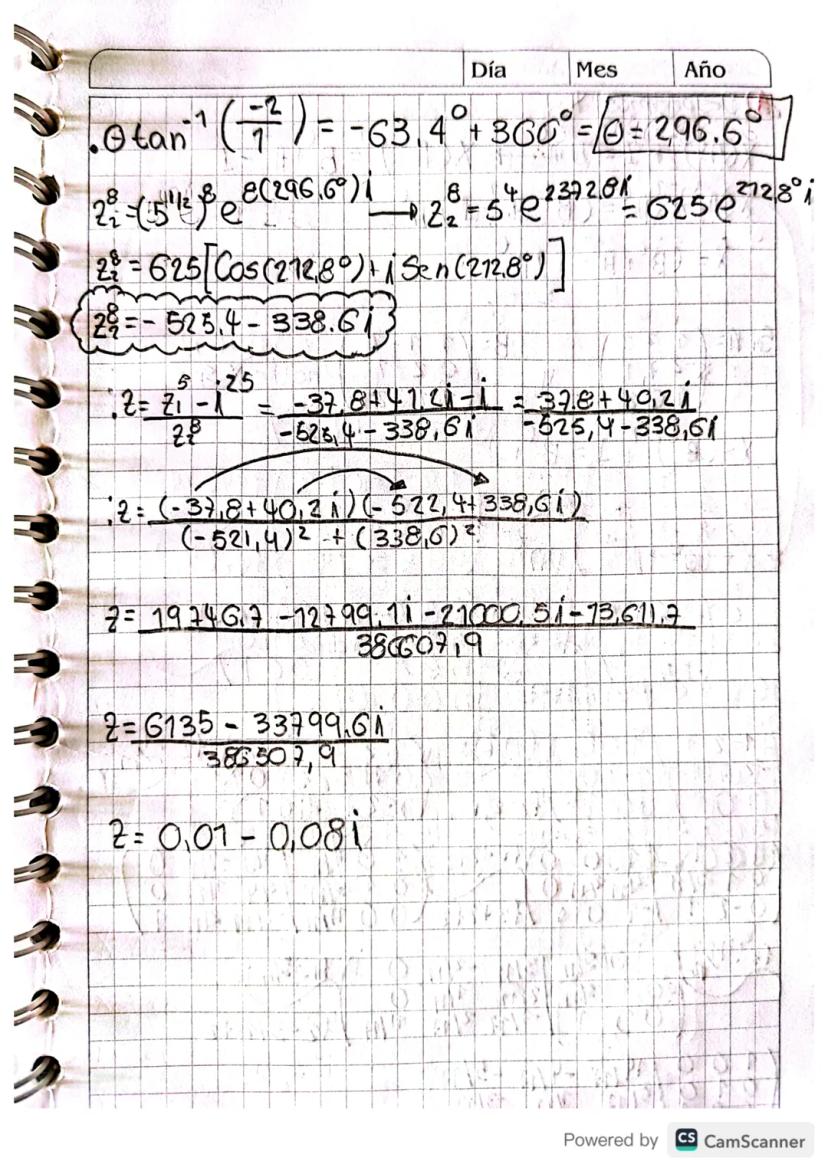 Día Mes Año
.θtan⁻¹ (-2/1) = -63.4° + 360° = θ = 296.6°
z₂⁸ = (5^1/2)⁸ e^8(296.6°)i → z₂⁸ = 5⁴ e^2372.8i = 625 e^212.8°i
z₂⁸ = 625[Cos(212.8°) + i Sen(212.8°)]
z₂⁸ = - 525.4 - 338.6i
z = (z₁⁵ - i²⁵)/z₂⁸ = (-37,8 + 41.2i - i)/(-525,4 - 338,6i) = (37,8 + 40,2i)/(-525,4 - 338,6i)
z = (-37,8 + 40,2i)(-522,4 + 338,6i)/((-521,4)² + (338,6)²)
z = (19746.7 - 12799.1i - 21000.5i - 13,611.7)/386607,9
z = (6135 - 33799.6i)/386507,9
z = 0,01 - 0,08i
Powered by CS CamScanner